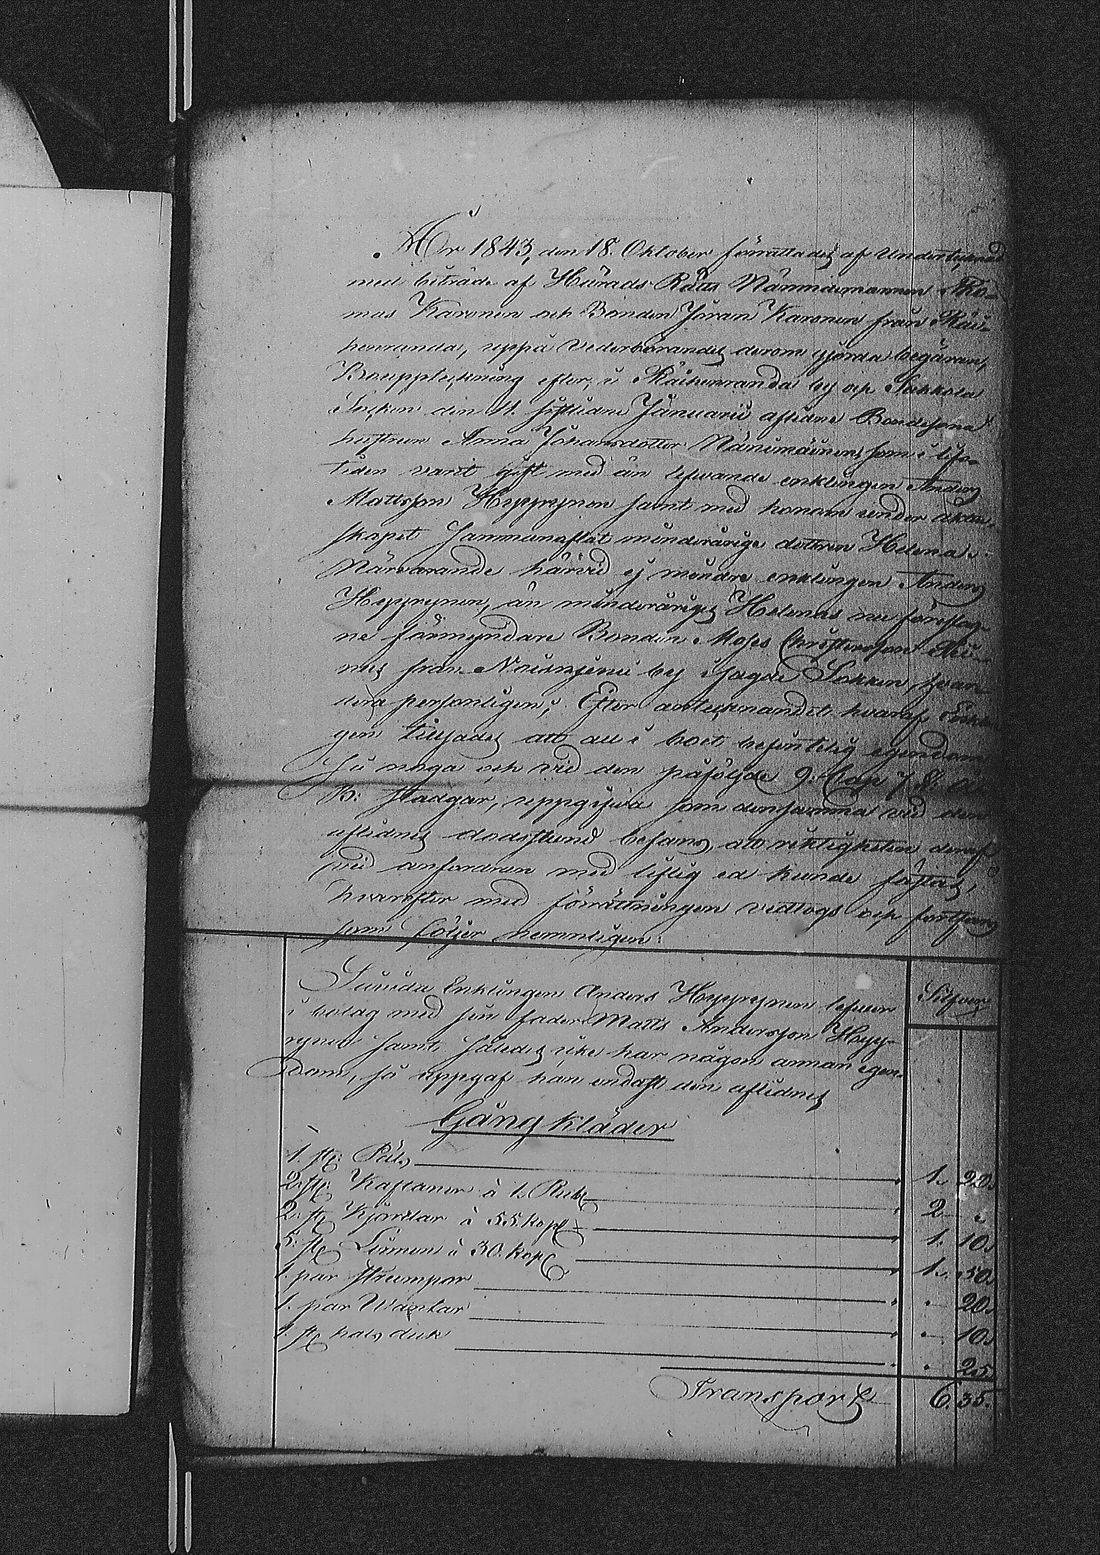 År 1843, den 18. Oktober förrättades af Undertecknad
med biträde af Härads Rätts Nämndemannen Tho-
mas Karonen och Bonden Jöran Karonen från Räi-
henranda, uppå vederbörandes derom gjorda begäran,
Bouppteckning efter, i Räihenranda by och Sakkola
Socken den 11. sistledne Januarii aflidne Bondesona
hustrun Anna Johansdotter Nänimäinen, som i lifs-
tiden varit gift med än lefwande enklingen Anders
Mattsson Heppynen samt med honom under äkten-
skapet sammanaflat minderåriga dottren Helena.
Närvarande härvid ej mindre enklingen Anders
Heppynen, än minderåriges Helenas nu föreslag-
ne förmyndare Bonden Moses Christersson
från by i sagde Socken, hvar-
dera personligen; Efter antecknandet hvaraf Enklin-
gen tillsades att all i boet befintelig egendom
så noga och vid den påföljde 9. Cap 7 §. Ä.
B. stadgar, uppgifva som densamma vid den
aflidnes dödsstund befans, att riktigheten deraf
vid anfordran med liflig ed kunde fästas,
hvarefter med förrättningen vidtogs och fortfors
som följer nemnligen:
Silfver
Såsida Enklingen Anders Heppynen lefver
i bolag med sin fader Matts Andersson Hepp-
ynen samt således icke har någon annan egen-
dom, så uppgaf han endast den aflidnes
Gång kläder
1. st. Päls 1. 20.
2. st. Kaftaner à 1. Rub. 2 -
2. st. Kjortlar à 55 kop. 1. 10.
5. st. Linnen à 30. kop. 1. 50.
1. par strumpor - 20.
1. par Wantar - 10.
1. st. halsduk - 25.
Transport 6. 35.